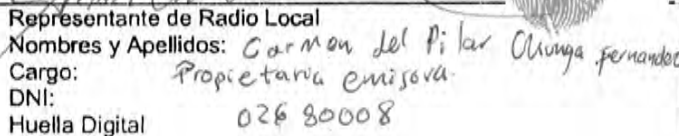 Representante de Radio Local
Nombres y Apellidos: Carmen del Pilar Chunga fernandez
Cargo: Propietaria emisora.
DNI:
Huella Digital 02680008